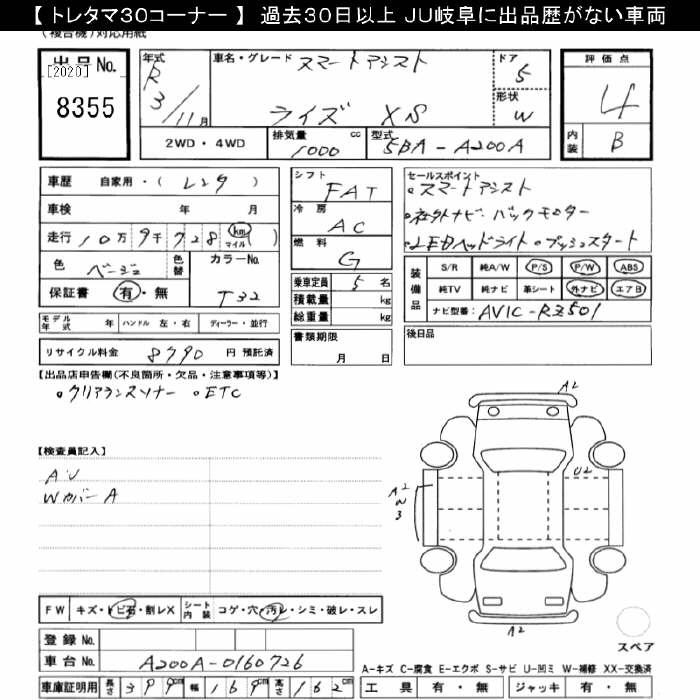 【 トレタマ30コーナー 】 過去30日以上 JU岐阜に出品歴がない車両
(複合機)対応用紙
出品 No. [2020] 8355
年式 R 3/11月
車名・グレード スマートアシスト
ライズ XS
ドア 5
形状 W
評価点 4
内装 B
2WD・4WD
排気量 1000 cc
型式 5BA-A200A
車歴 自家用・(レンタ)
車検 年 月
走行 10万9千728 km マイル ( )
色 ベージュ 色替
カラーNo. T32
保証書 有・無
モデル年式 年 ハンドル 左・右 ディーラー・並行
リサイクル料金 8790 円 預託済
シフト FAT
冷房 AC
燃料 G
乗車定員 5 名
積載量 kg
総重量 kg
書類期限
月 日
セールスポイント
・スマートアシスト
・社外ナビ・バックモニター
・LEDヘッドライト ・プッシュスタート
装備品
S/R 純A/W P/S P/W ABS
純TV 純ナビ 革シート 外ナビ エアB
ナビ型番: AVIC-RZ501
後日品
【出品店申告欄(不良箇所・欠品・注意事項等)】
・クリアランスソナー ・ETC
【検査員記入】
AU
WカバーA
A2
U2
A2
〜
3
A2
スペア
FW キズ・トビ石・割レX シート内装 コゲ・穴・汚レ・シミ・破レ・スレ
登録 No.
車台 No. A200A-0160726
車庫証明用 長さ 399cm 幅 169cm 高さ 162cm
A-キズ C-腐食 E-エクボ S-サビ U-凹ミ W-補修 XX-交換済
工具 有・無 ジャッキ 有・無